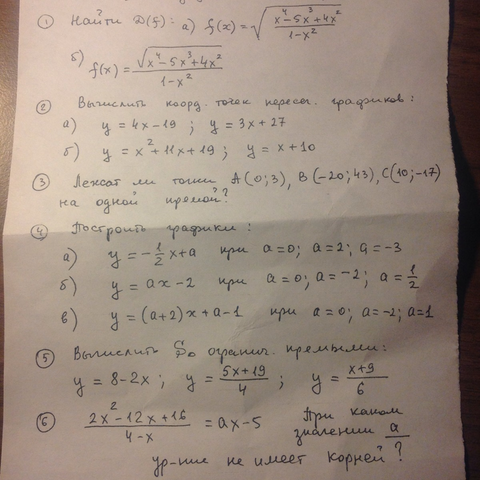 ① Найти D(f): а) f(x) = √((x⁴-5x³+4x²)/(1-x²))
б) f(x) = √(x⁴-5x³+4x²)/(1-x²)
② Вычислить коорд. точек пересеч. графиков:
а) y = 4x-19 ; y = 3x+27
б) y = x²+11x+19 ; y = x+10
③ Лежат ли точки A(0;3), B(-20;43), C(10;-17)
на одной прямой?
④ Построить графики:
а) y = -1/2 x+a при a=0; a=2; a=-3
б) y = ax-2 при a=0; a=-2; a=1/2
в) y = (a+2)x + a-1 при a=0; a=-2; a=1
⑤ Вычислить S огранич. прямыми:
y = 8-2x ; y = (5x+19)/4 ; y = (x+9)/6
⑥ (2x²-12x+16)/(4-x) = ax-5 При каком
значении a
ур-ние не имеет корней?